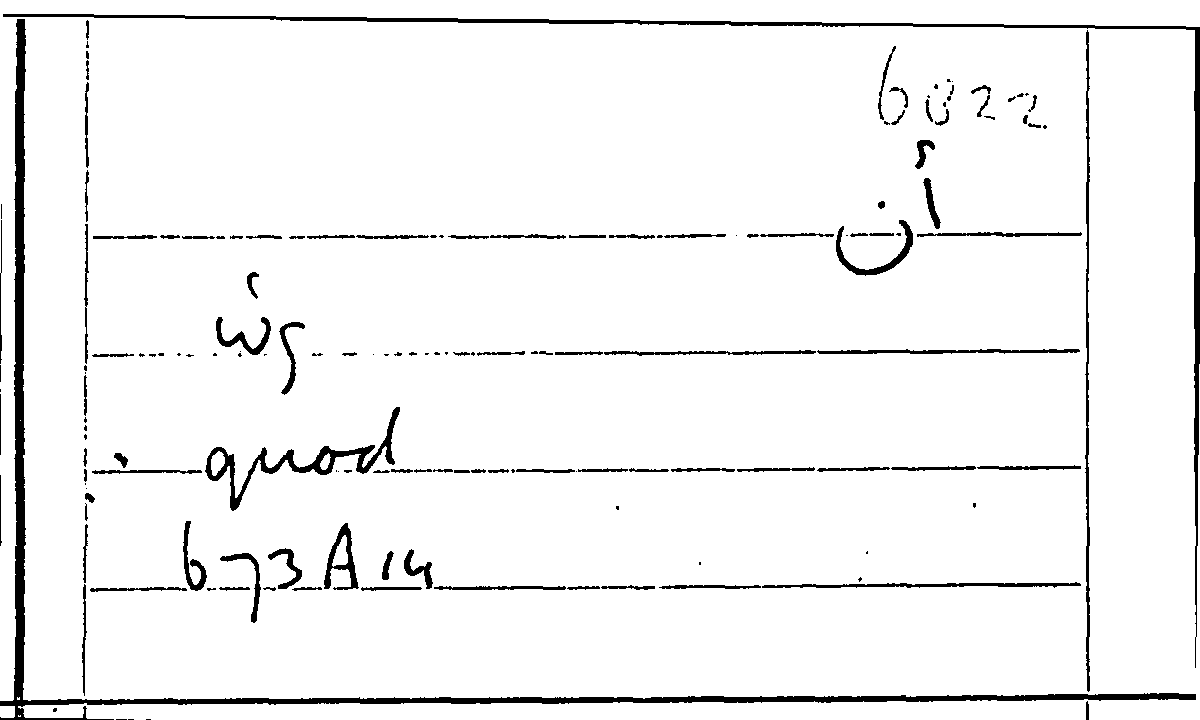 6822
أن
ὡς
quod
673A14